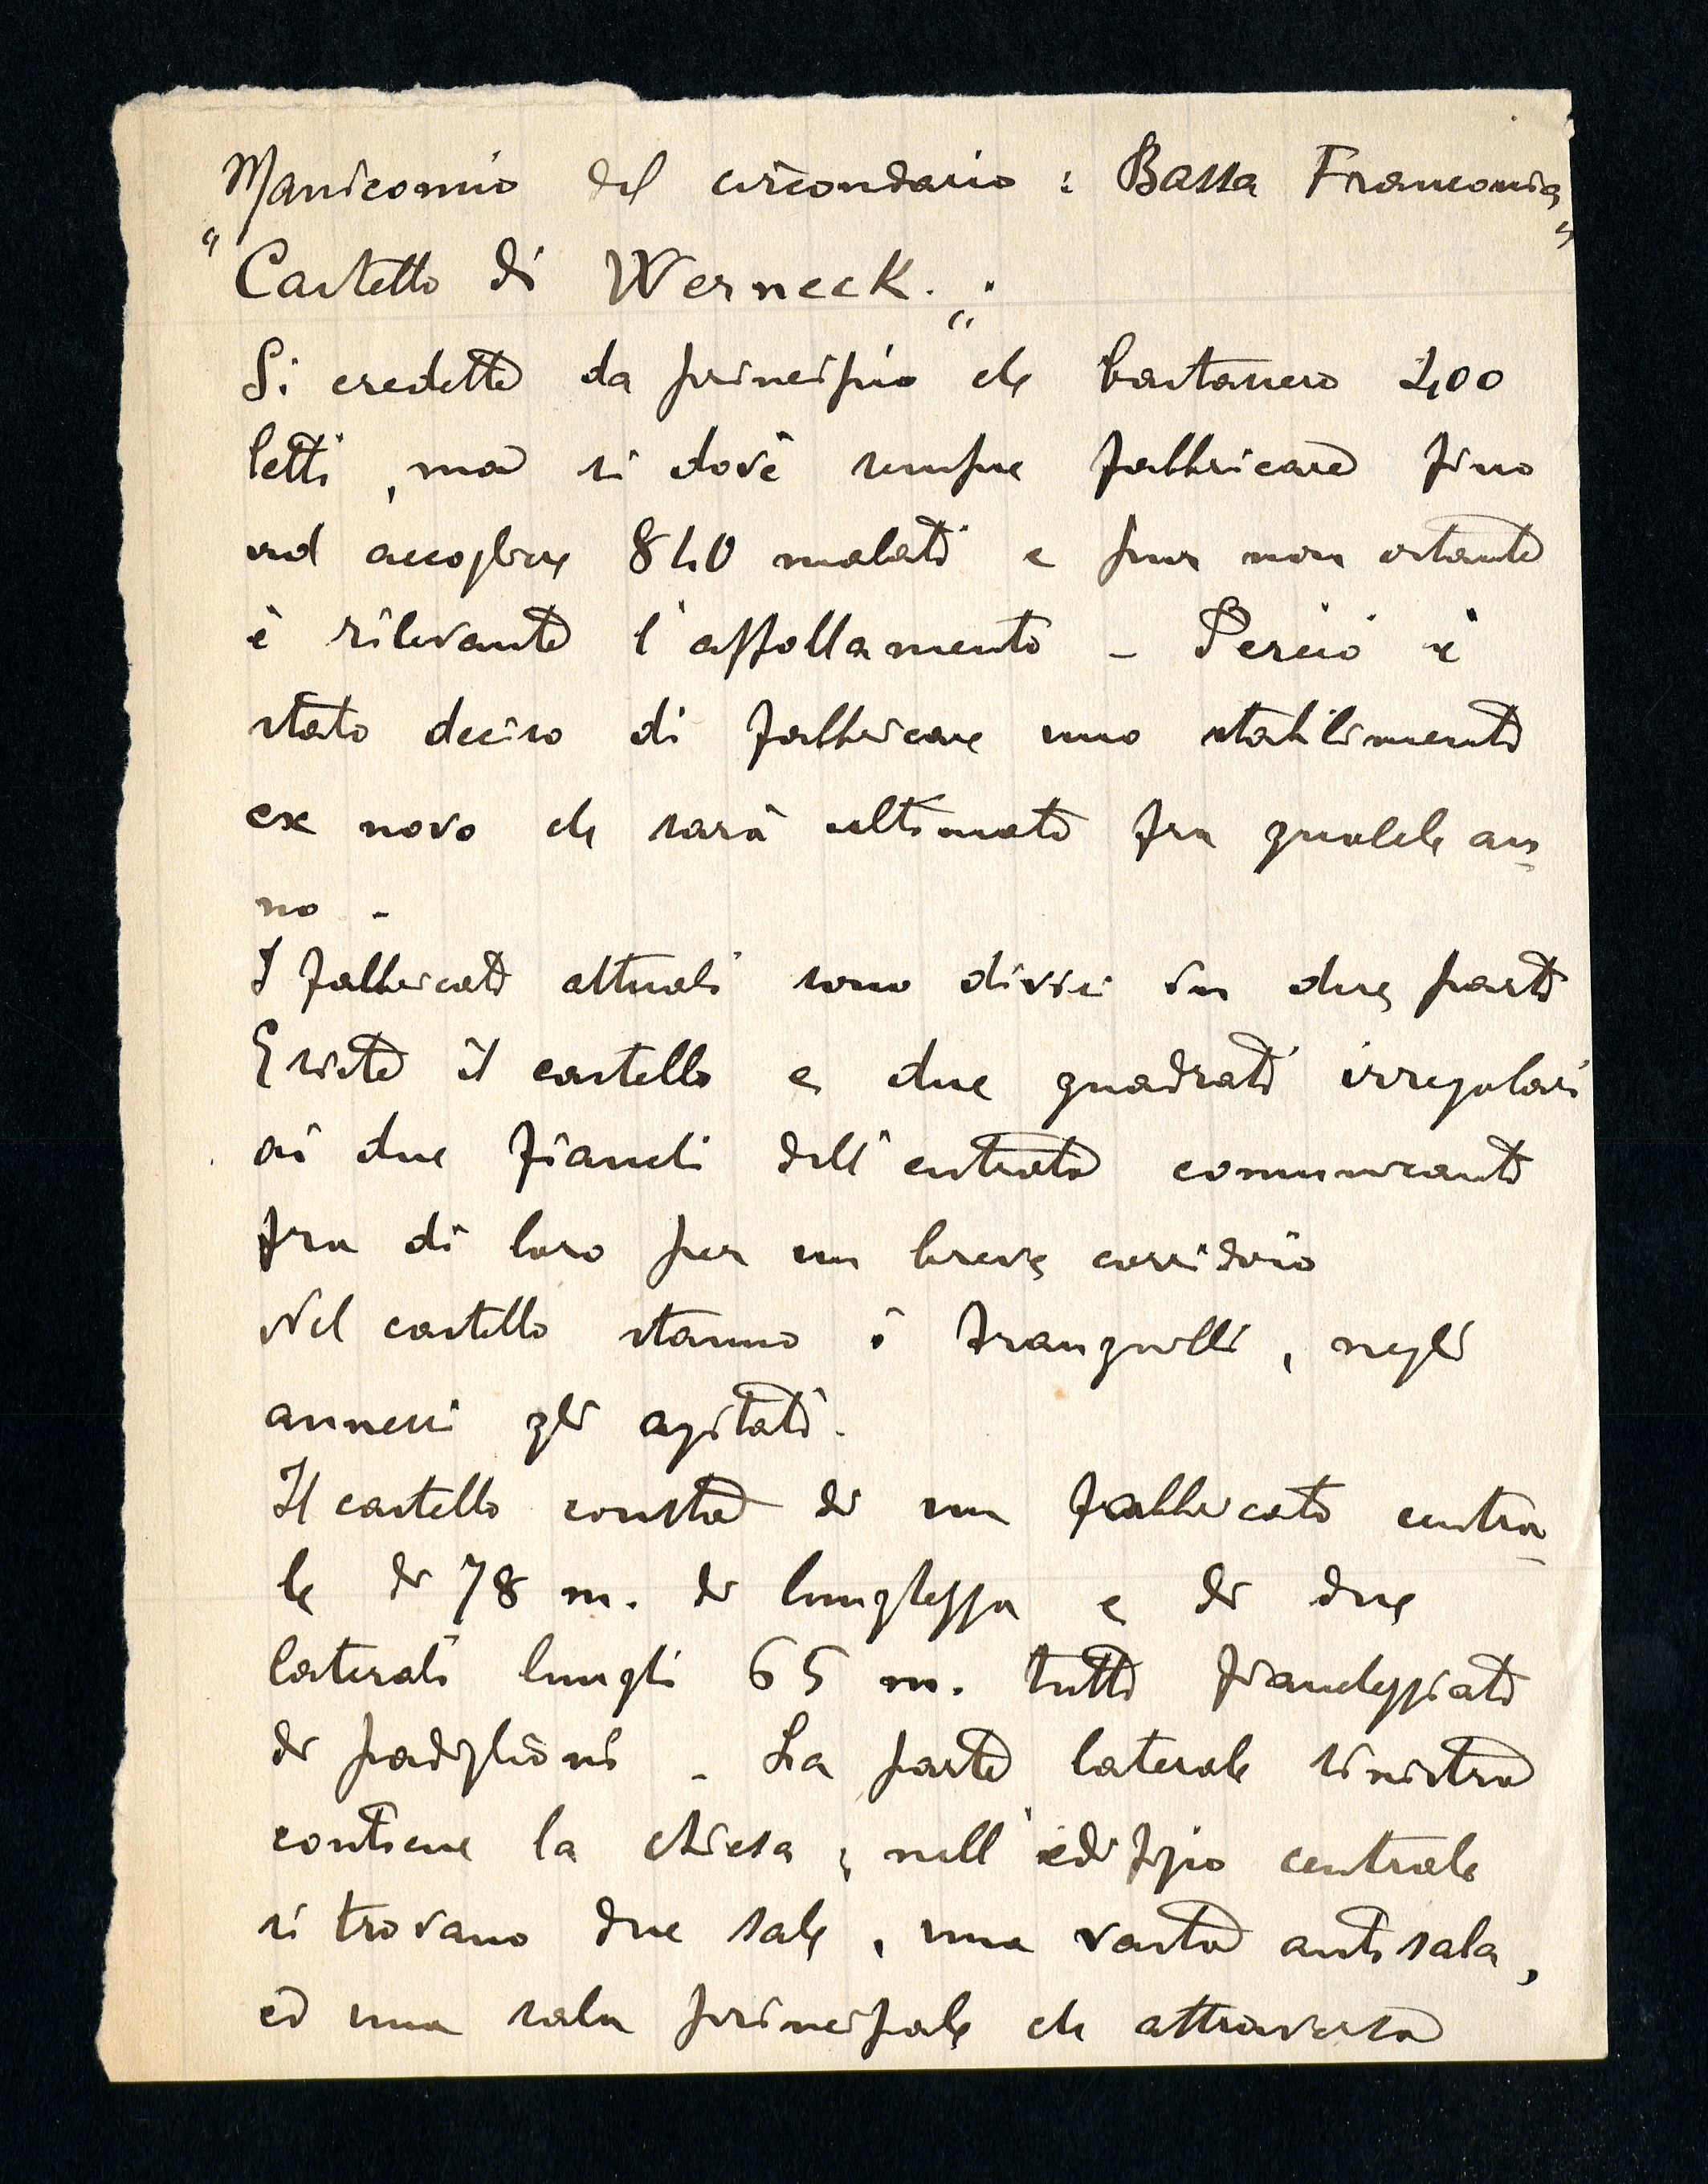 Manicomio del circondario : Bassa Franconia
"Castello di Werneck."
Si credette da principio che bastassero 400
letti, ma si dovè sempre fabbricare fino
ad accogliere 840 malati e pur non ostante
è rilevante l'affollamento - Perciò è
stato deciso di fabbricare uno stabilimento
ex novo che sarà ultimato fra qualche an
no -
I fabbricati attuali sono divisi in due parti
Esiste il castello e due quadrati irregolari
ai due fianchi dell'entrata comunicanti
fra di loro per un breve corridoio
Nel castello stanno i tranquilli, negli
annessi gli agitati.
Il castello consta di un fabbricato centra
le di 78 m. di lunghezza e di due
laterali lunghi 65 m. tutti fiancheggiati
di padiglioni - La parte laterale sinistra
contiene la chiesa; nell'edifizio centrale
si trovano due sale, una vasta antisala,
ed una sala principale che attraversa